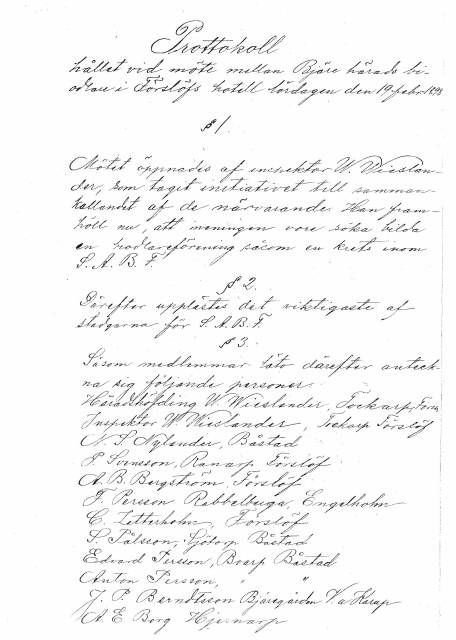 Prottokoll
hållet vid möte mellan Bjäre härads bi-
odlare i Förslöfs hotell lördagen den 19 febr 1898
§ 1.
Mötet öppnades af inspektor W. Wieslan-
der, som tagit initiativet till samman-
kallandet af de närvarande. Han fram-
höll nu, att meningen vore söka bilda
en biodlareförening såsom en krets inom
S. A. B. F.
§ 2.
Därefter upplästes det viktigaste af
stadgarna för S. A. B. F.
§ 3.
Såsom medlemmar läto därefter anteck-
na sig följande personer:
Häradshöfding W Wieslander, Tockarp, Försl
Inspektor W Wieslander, Tockarp Förslöf
N. S. Nylander, Båstad
P. Svensson, Ranarp Förslöf
A. B. Bergström, Förslöf
F. Persson Rabbelberga, Engelholm
C. Zetterholm, Förslöf
S. Pålsson, Sjötorp Båstad
Edvard Persson, Boarp Båstad
Anton Persson, " "
J. P. Berndtsson Bjäresgården V. a Karup
A. E. Borg Hjernarp